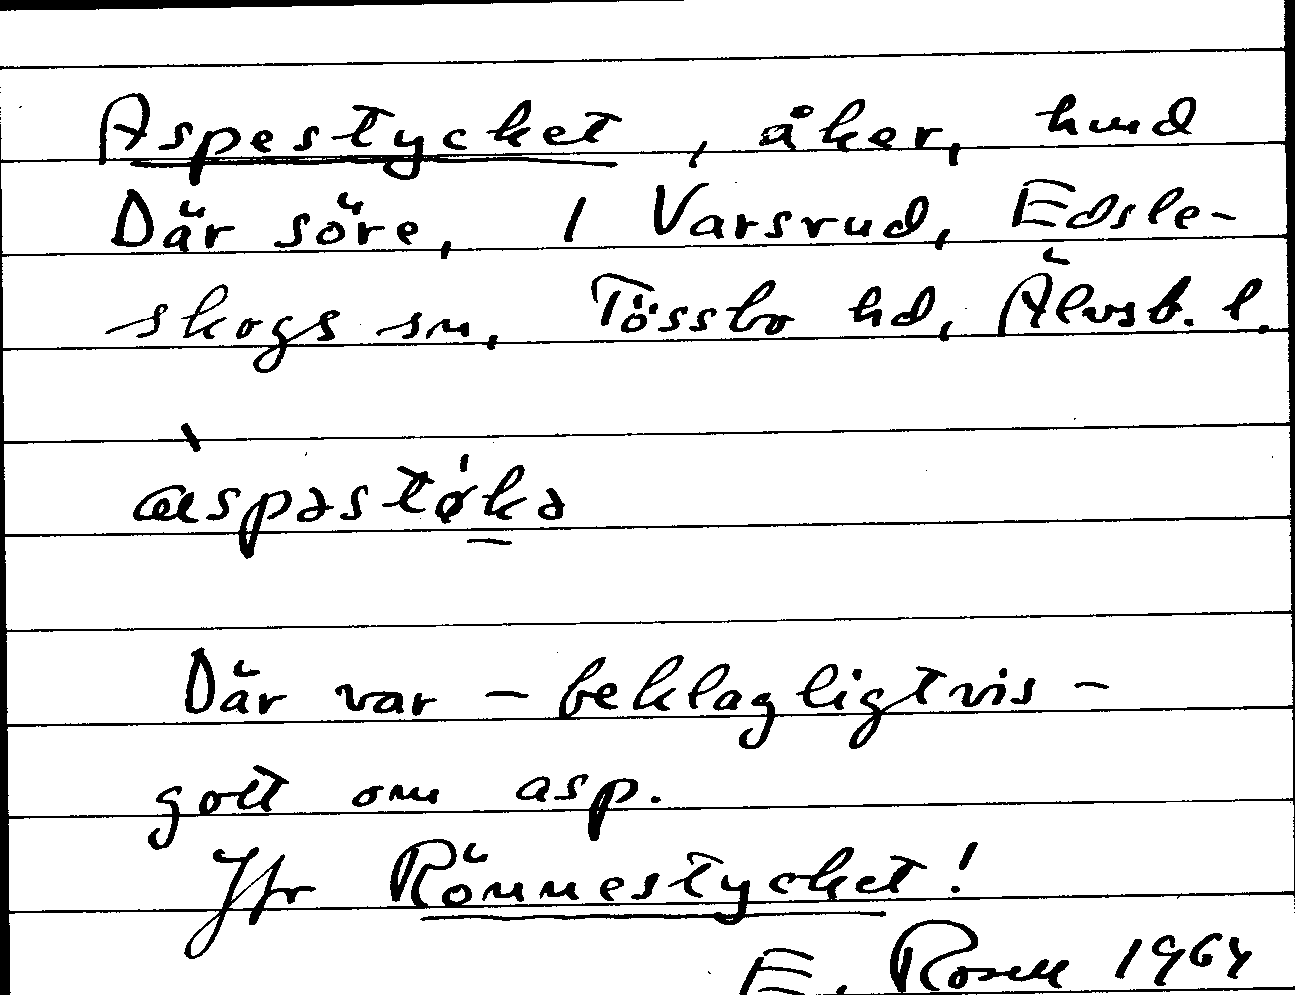 Aspestycket, åker, hmd
Där söre, 1 Varsrud, Edsle-
skogs sn, Tössbo hd, Älvsb. l.
àspastø'ka
Där var – beklagligtvis –
gott om asp.
Jfr Rönnestycket!
E. Rosell 1964